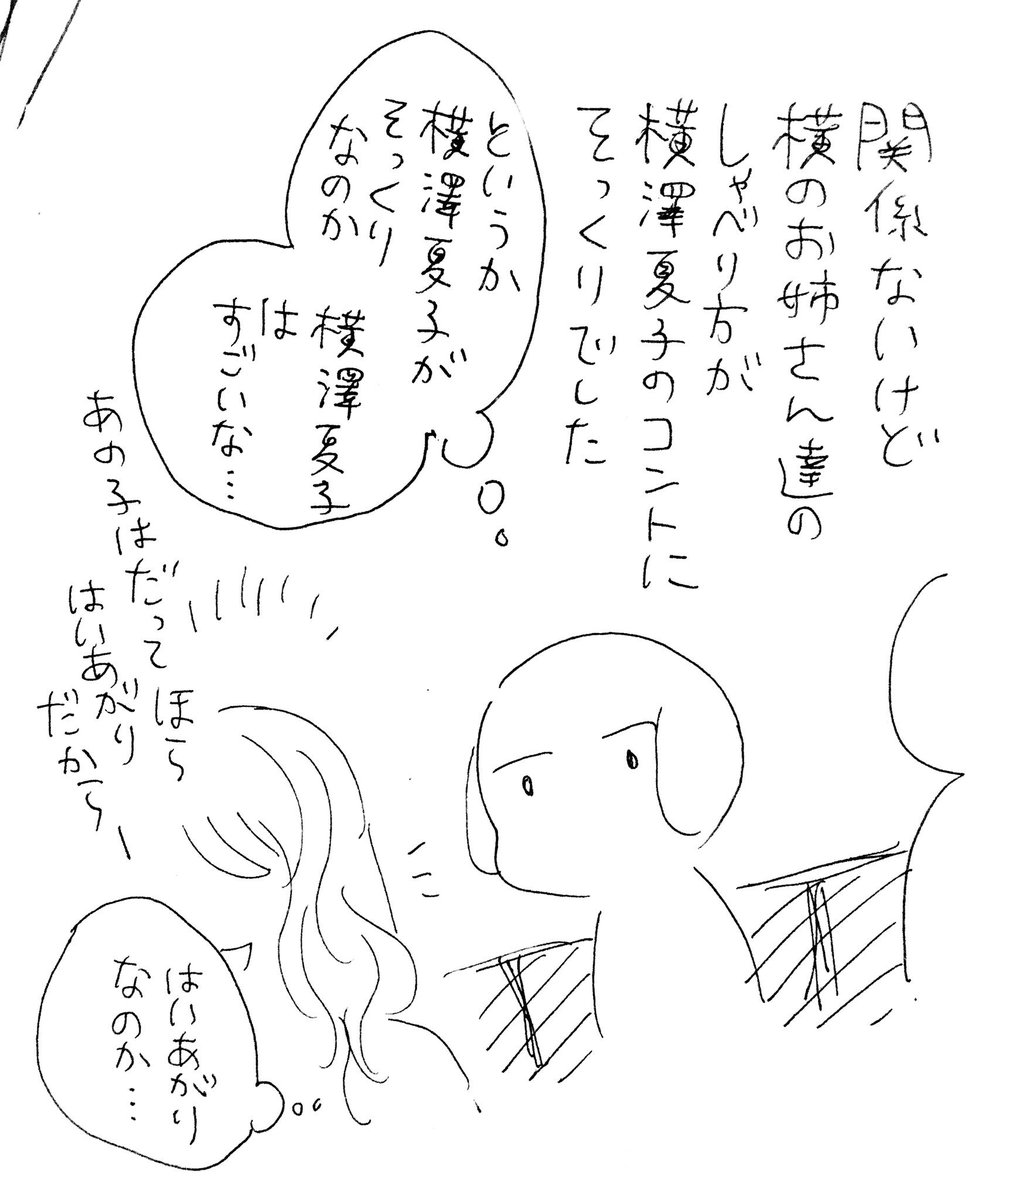 関係ないけど
横のお姉さん達の
しゃべり方が
横澤夏子のコントに
そっくりでした
というか
横澤夏子が
そっくり
なのか
横澤夏子
は
すごいな…
あの子はだってほら
はいあがり
だから〜
はいあがり
なのか…